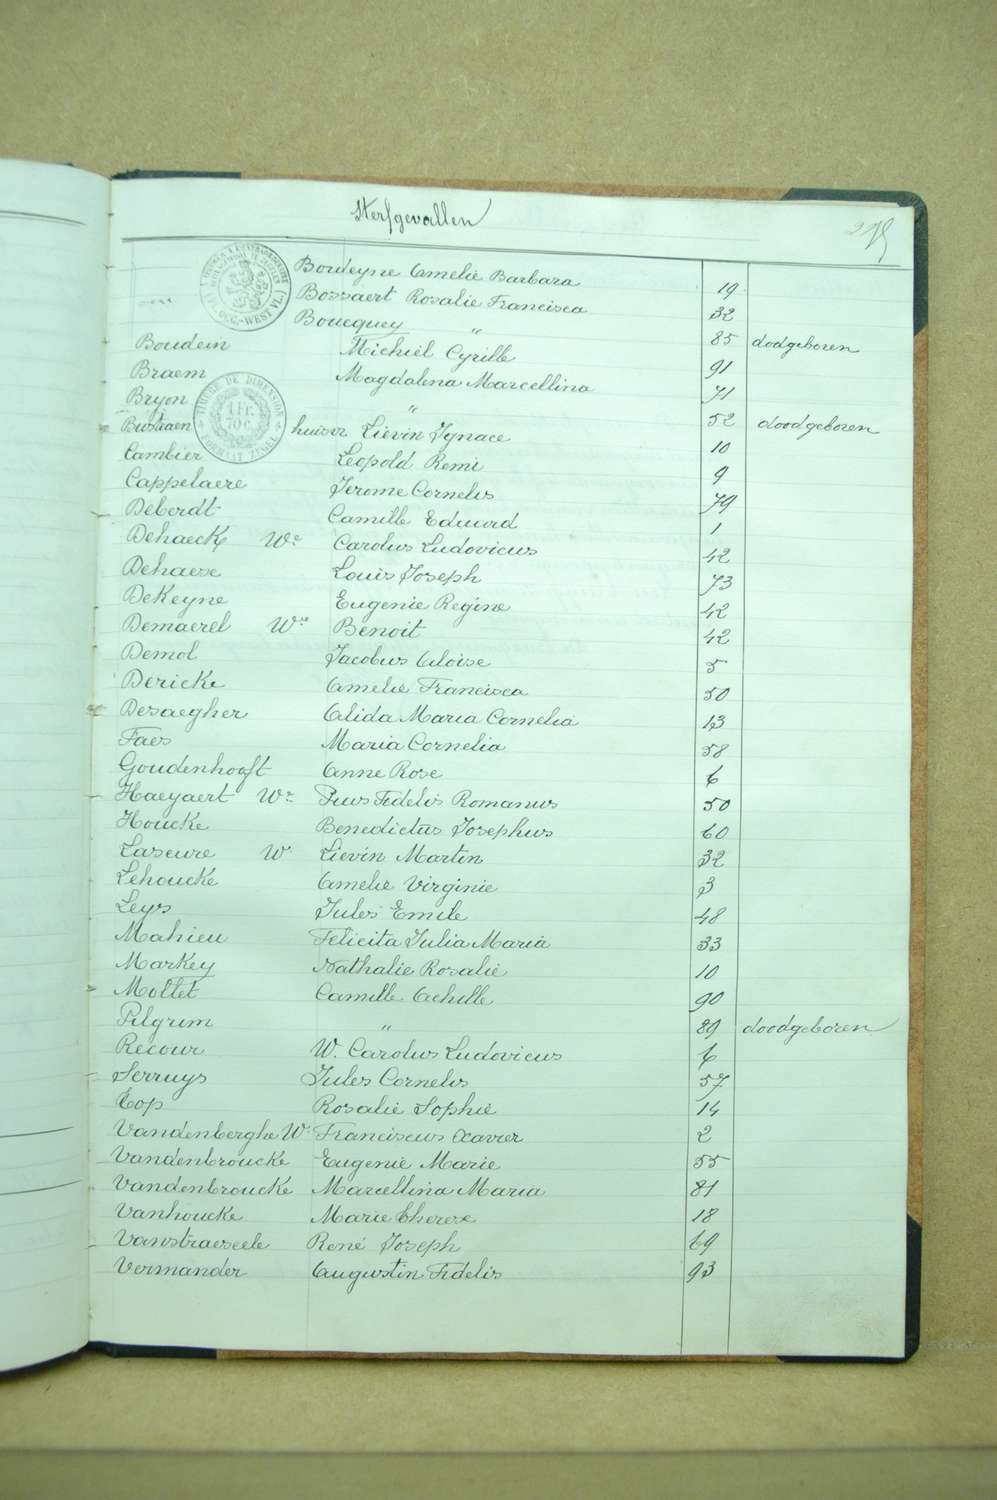 Sterfgevallen
Boudeyne Amelie Barbara 19
Bossaert Rosalie Francisca 32
Boucquey " 85 dodgeboren
Boudein Michiel Cyrille 91
Braem Magdalena Marcellina 71
Bryon " 52 doodgeboren
Bustaen huiser Lievin Ignace 10
Cambier Leopold Remi 9
Cappelaere Jerome Cornelis 79
Deberdt Camille Eduard 1
Dehaeck We Carolus Ludovicus 42
Dehaese Louis Joseph 73
DeKeyne Eugenie Regine 42
Demaerel We Benoit 42
Demol Jacobus Aloise 5
Dericke Amelie Francisca 50
Desaegher Alida Maria Cornelia 13
Faes Maria Cornelia 58
Goudenhooft Anne Rose 6
Haeyaert We Pius Fidelis Romanus 50
Houcke Benedictus Josephus 60
Laseure W Lievin Martin 32
Lehoucke Amelie Virginie 3
Leys Jules Emile 48
Mahieu Felicita Julia Maria 33
Markey Nathalie Rosalie 10
Mollet Camille Achille 90
Pilgrim " 89 doodgeboren
Recour W. Carolus Ludovicus 6
Serruys Jules Cornelis 57
Top Rosalie Sophie 14
Vandenberghe W. Franciscus Xavier 2
Vandenbroucke Eugenie Marie 55
Vandenbroucke Marcellina Maria 81
Vanhoucke Marie Therese 18
Vanstraeseele René Joseph 69
Vermander Augustin Fidelis 93
OCC.-WEST VL.
TIMBRE DE DIMENSION
1 Fr.
70 c.
FORMAAT ZEGEL